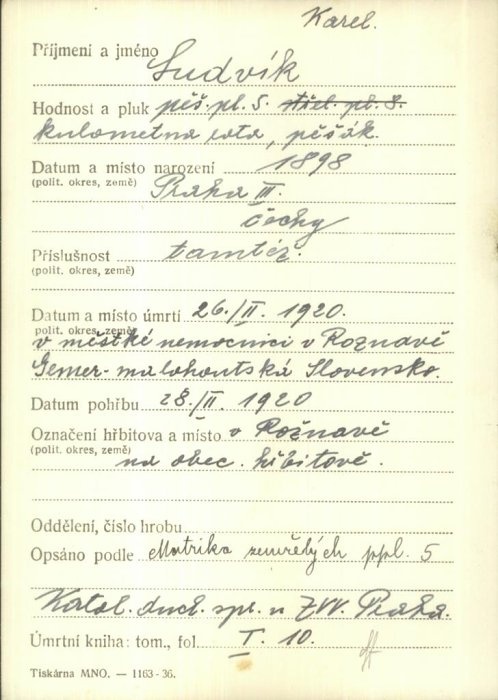 Karel.
Příjmení a jméno Ludvík
Hodnost a pluk pěš. pl. 5. střel. pl. 8.
kulometna rota, pěšák.
Datum a místo narození 1898
(polit. okres, země) Praha III.
čechy
Příslušnost tamtéž.
(polit. okres, země)
Datum a místo úmrtí 26./II. 1920.
polit. okres, země)
v městké nemocnici v Roznavě
Gemer-malohontská Slovensko.
Datum pohřbu 28./II. 1920
Označení hřbitova a místo v Rožnavě
(polit. okres, země)
na obec. hřbitově.
Oddělení, číslo hrobu
Opsáno podle Matrika zemřelých ppl. 5
Katol. duch. spr. u ZVV. Praha.
Úmrtní kniha: tom., fol. I. 10.
Tiskárna MNO. — 1163-36.